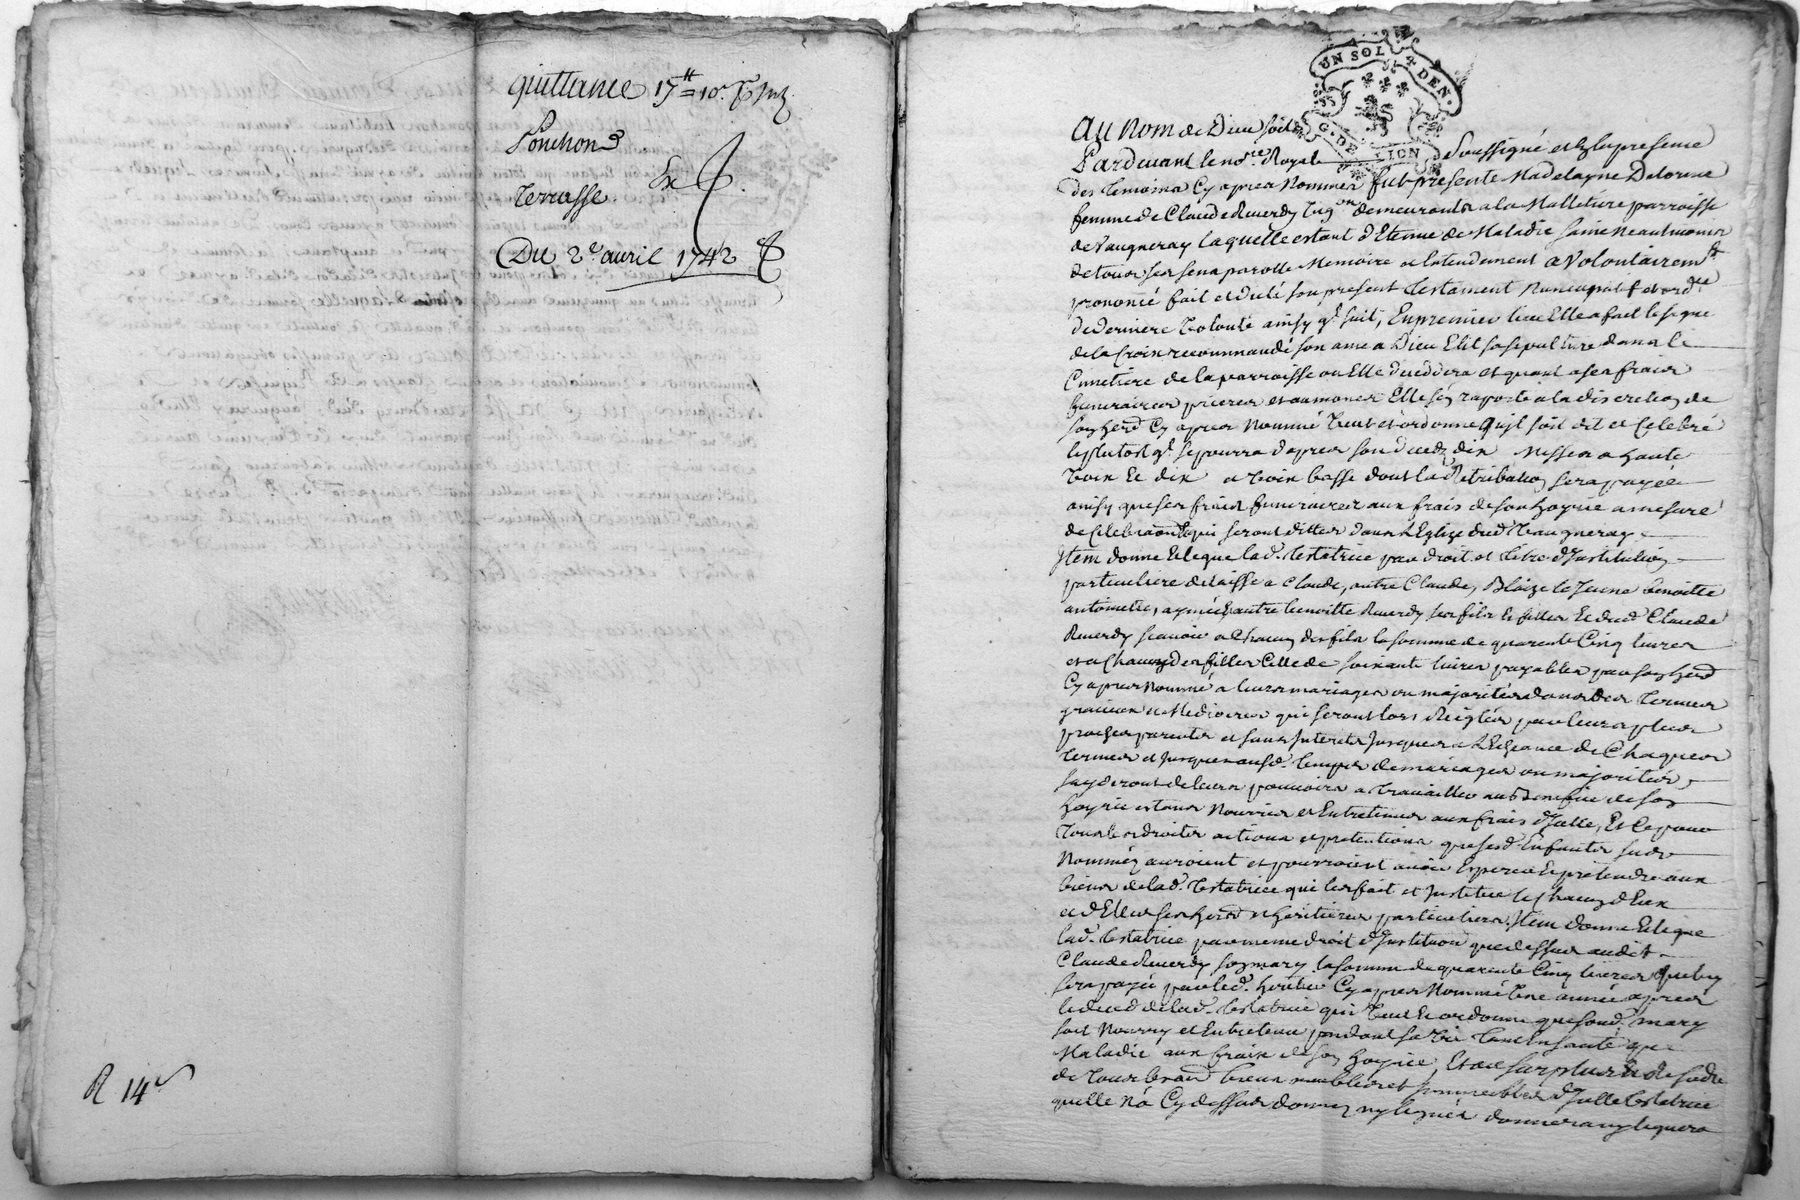 quittance 17ᵗᵗ=10ˢ
Ponchon
Terrasse.
Ex
Du 2ᵉ avril 1742
R 14ˢ
UN SOL 4 DEN.
G. DE LION
Au Nom de Dieu soit
Pardevant le noʳᵉ Royal soussigné et En la presence
des temoins Cy apres Nommes fut presente Madelayne Delorme
femme de Claude Reverdy demeurants a la Malleture parroisse
de Vaugneray laquelle estant d'Etenue de Maladie saine Neantmoins
de tous ses sens parolle Memoire et Entendement a Volontairemᵗ
prononcé fait et dicté son present testament Nuncupatif et ordʳᵉ
de derniere Volonté ainsy qᵗ suit, Enpremier lieu Elle a fait le signe
de la Croix recommandé son ame a Dieu Elit sa sepulture dans le
Cimetiere de la parroisse ou Elle decedera et quant a ses frais
funeraires prieres et aumones Elle s'en raporte a la discretion de
son herᵉʳ Cy apres Nommé Veut et ordonne qu'il soit dit et Celebré
le plutost qᵗ se pourra d'apres son deceds dix Messes a haute
Voix Et dix a Voix basse dont la Retribution sera payée
ainsy que ses frais funeraires aux frais de son hoyrie a mesure
de Celebration qui seront dittes dans L'Eglize dud. Vaugneray
Item donne Et legue lad. testatrice par droit et titre d'Institution
particuliere delaisse a Claude, autre Claude, Blaize le Jeune benoitte
antoinette, aymée, autre benoitte Reverdy ses fils Et filles Et dud. Claude
Reverdy scavoir a Chacun des fils la somme de quarente Cinq livres
et a Chacune des filles Celle de soixante livres payables par son herᵉʳ
Cy apres Nommé a leurs mariages ou majorités dans des termes
gracieux et Mediocres qui seront lors Reiglés par leurs plus
proches parents et sans Interets Jusques a L'Echeance de Chaques
termes et Jusques ausd. temps de mariages ou majorités
sayderont de leurs pouvoirs a travailler au Benefice de son
hoyrie estans Nourris et Entretenus aux frais d'Icelle, Et Ce pour
tous les droits actions et pretentions que sesd. Enfants sus
Nommés auroient et pourroient avoir Esperer Et pretendre aux
biens de lad. testatrice qui les fait et Institue Et Chacun d'Eux
et d'Elles ses herᵉʳˢ et heritieres particuliers. Item donne Et legue
lad. testatrice par meme droit d'Institution que dessus audit
Claude Reverdy son mary la somme de quarente Cinq livres que luy
sera payé par led. heritier Cy apres Nommé Une année apres
le deced de lad. testatrice qui Veut Et ordonne que sond. mary
soit Nourry et Entretenu pendant sa Vie tant En santé que
Maladie aux frais de son hoyrie, Et au surplus Et Residu
de tous Et uns biens meubles et Immeubles d'Icelle testatrice
quelle Na Cy dessus donnez ny legués donnera ny leguera